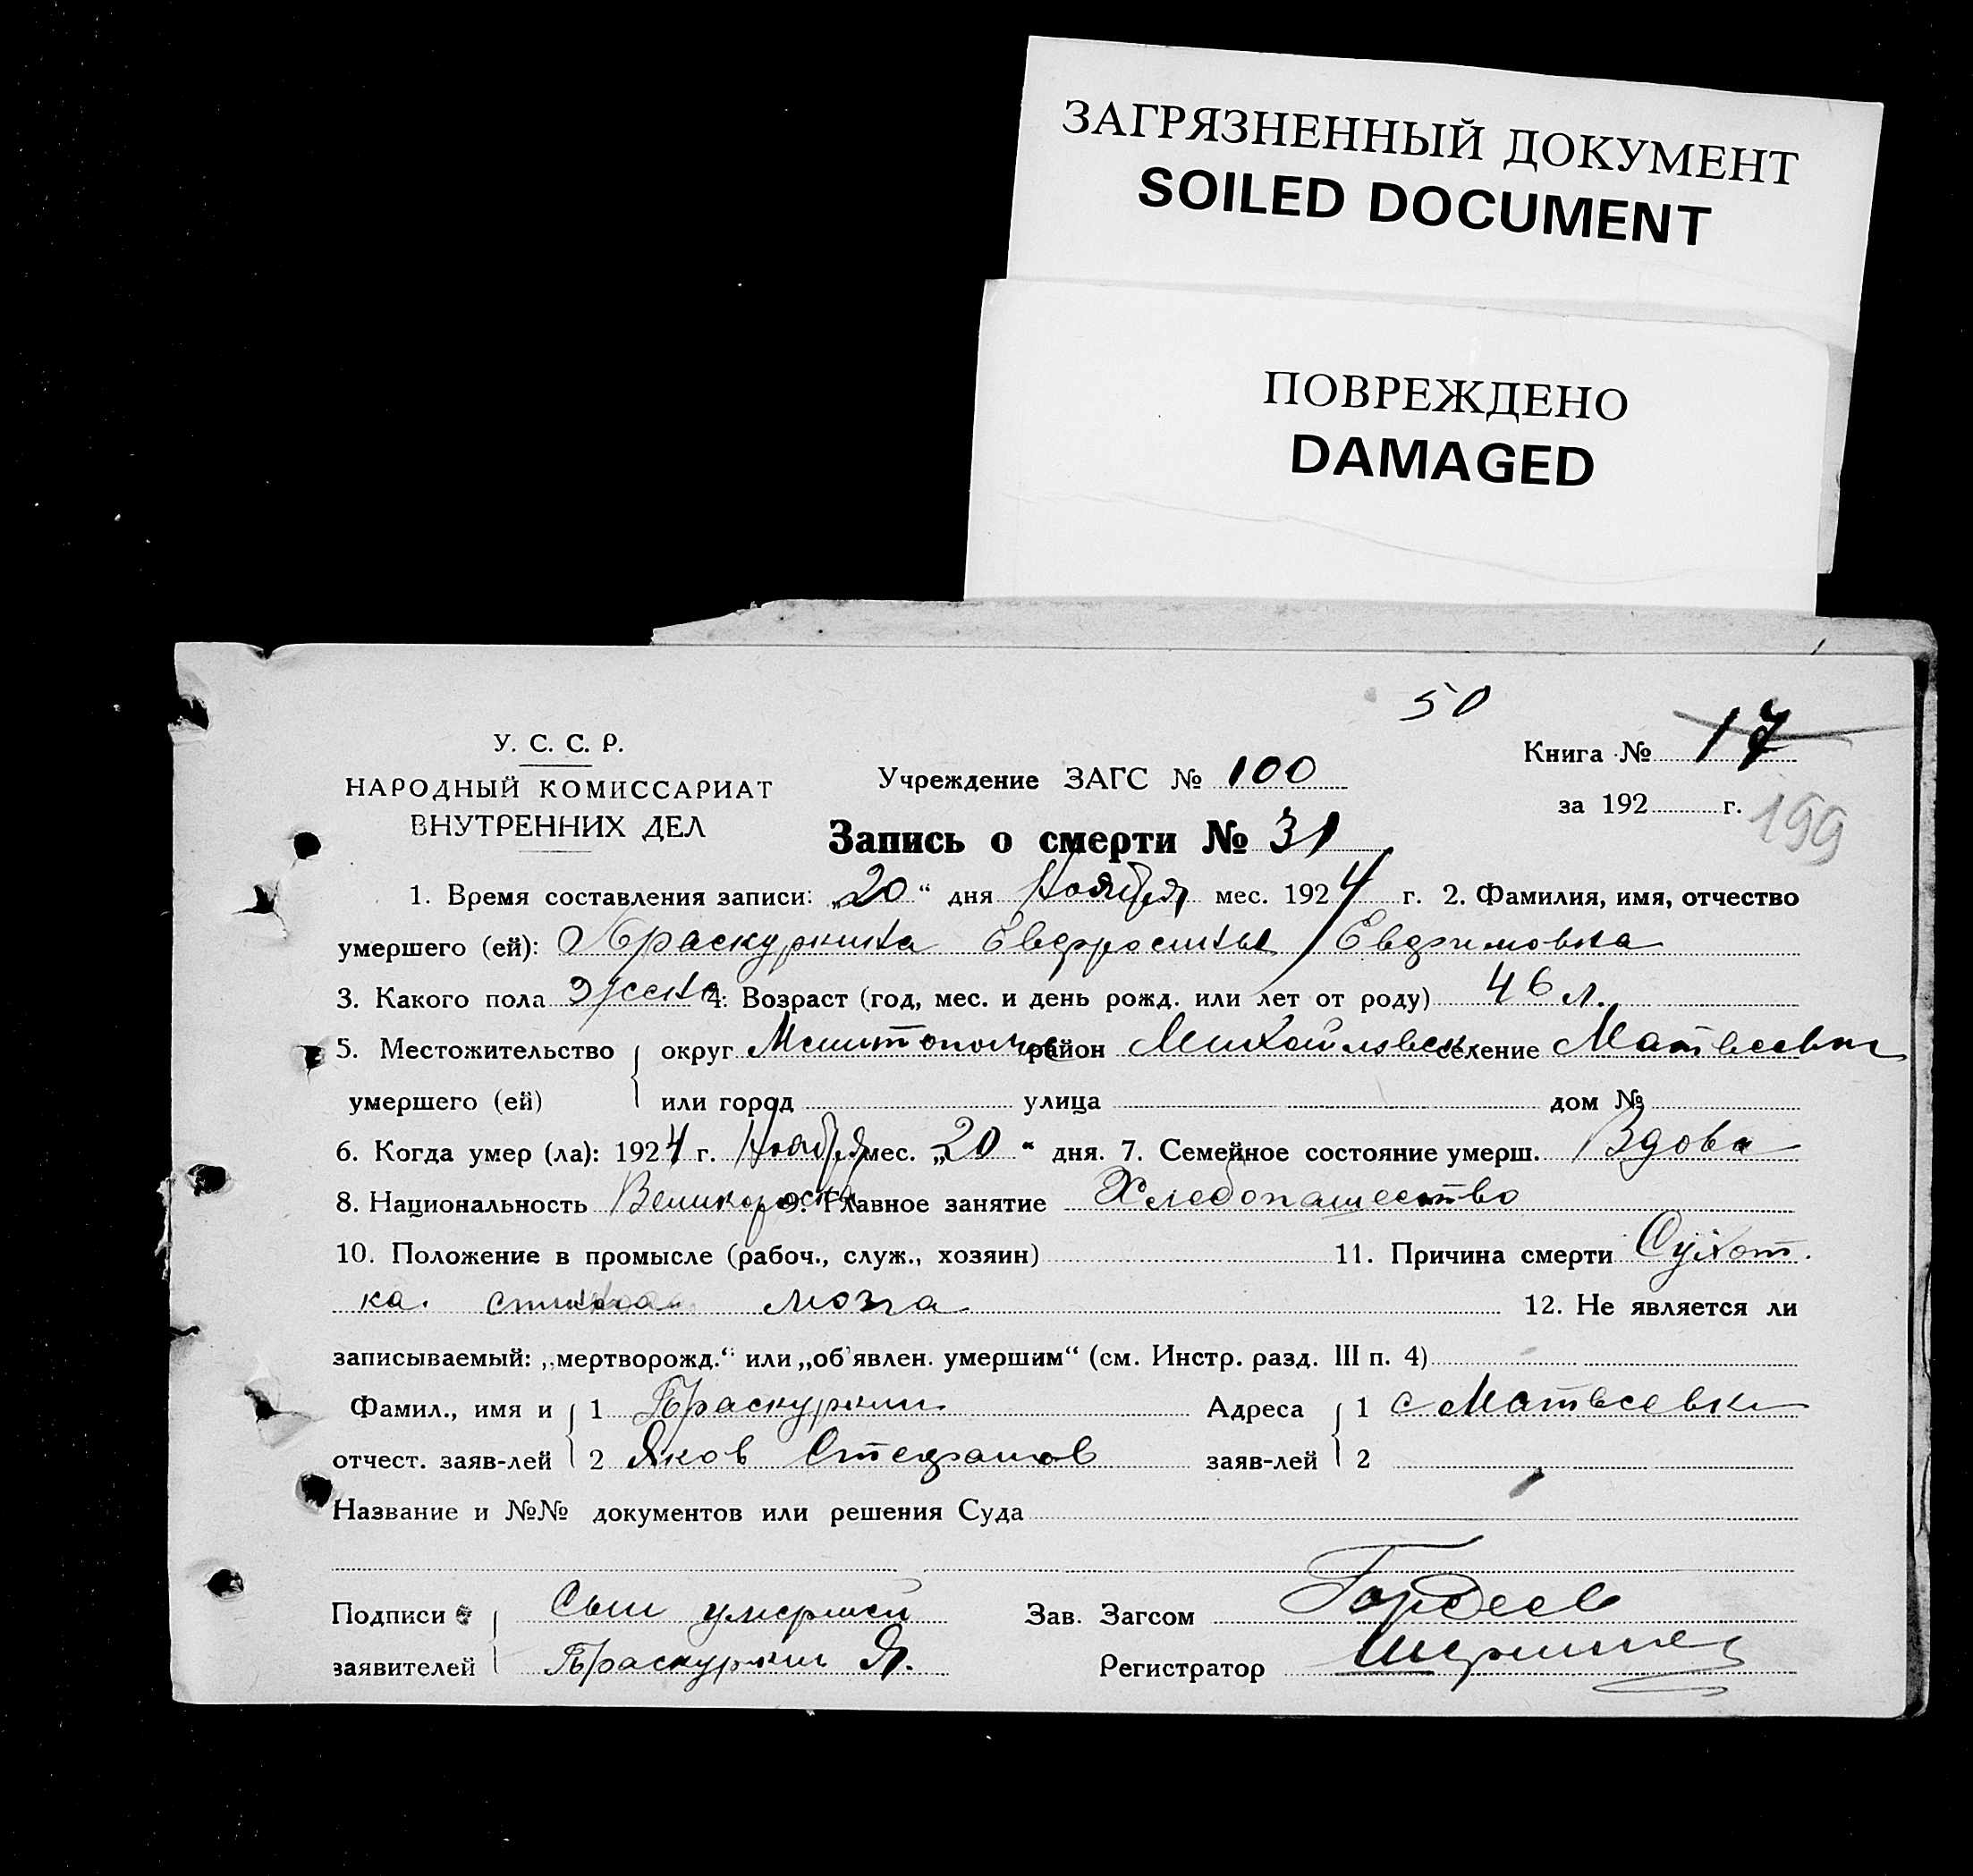 ЗАГРЯЗНЕННЫЙ ДОКУМЕНТ
SOILED DOCUMENT
ПОВРЕЖДЕНО
DAMAGED
50
У. С. С. Р.
НАРОДНЫЙ КОМИССАРИАТ
ВНУТРЕННИХ ДЕЛ
Учреждение ЗАГС № 100
Книга № 17
за 192 г.
199
Запись о смерти № 31
1. Время составления записи: „20“ дня Ноября мес. 1924 г. 2. Фамилия, имя, отчество
умершего (ей): Праскуркина Евдросины Евдимовна
3. Какого пола женс 4. Возраст (год, мес. и день рожд. или лет от роду) 46 л.
5. Местожительство округ Мелитопольс район Михайловск селение Матвеевки
умершего (ей) или город улица дом №
6. Когда умер (ла): 1924 г. Ноября мес. „20“ дня. 7. Семейное состояние умерш. Вдова
8. Национальность Великороска 9. Главное занятие Хлебопашество
10. Положение в промысле (рабоч., служ., хозяин) 11. Причина смерти Сухот
ка. спинноа мозга 12. Не является ли
записываемый: „мертворожд.“ или „об'явлен. умершим“ (см. Инстр. разд. III п. 4)
Фамил., имя и 1 Праскуркин Адреса 1 с Матвеевки
отчест. заяв-лей 2 Яков Стефанов заяв-лей 2
Название и №№ документов или решения Суда
Подписи Сын умершей Зав. Загсом Гордеев
заявителей Праскуркин Я. Регистратор